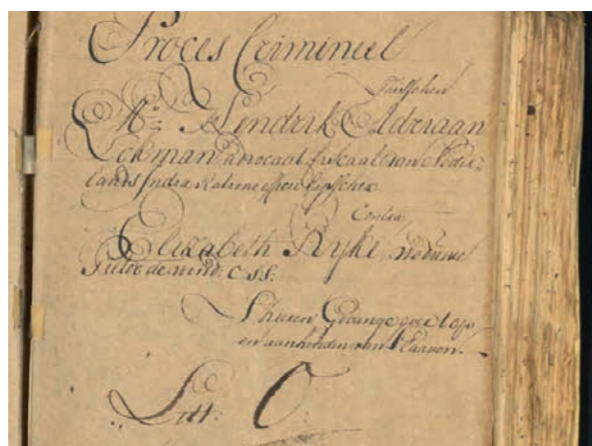 Proces Crimineel
Tusschen
Mr. Hendrik Adriaan
Eekman advocaat fiscaal van Neder
lands India Ratione officii Eijsscher
Contra
Elizabeth Ryke, weduwe
de wind. C.S.S.
Thans Gevange over
en aanhouden van
Litt: O.